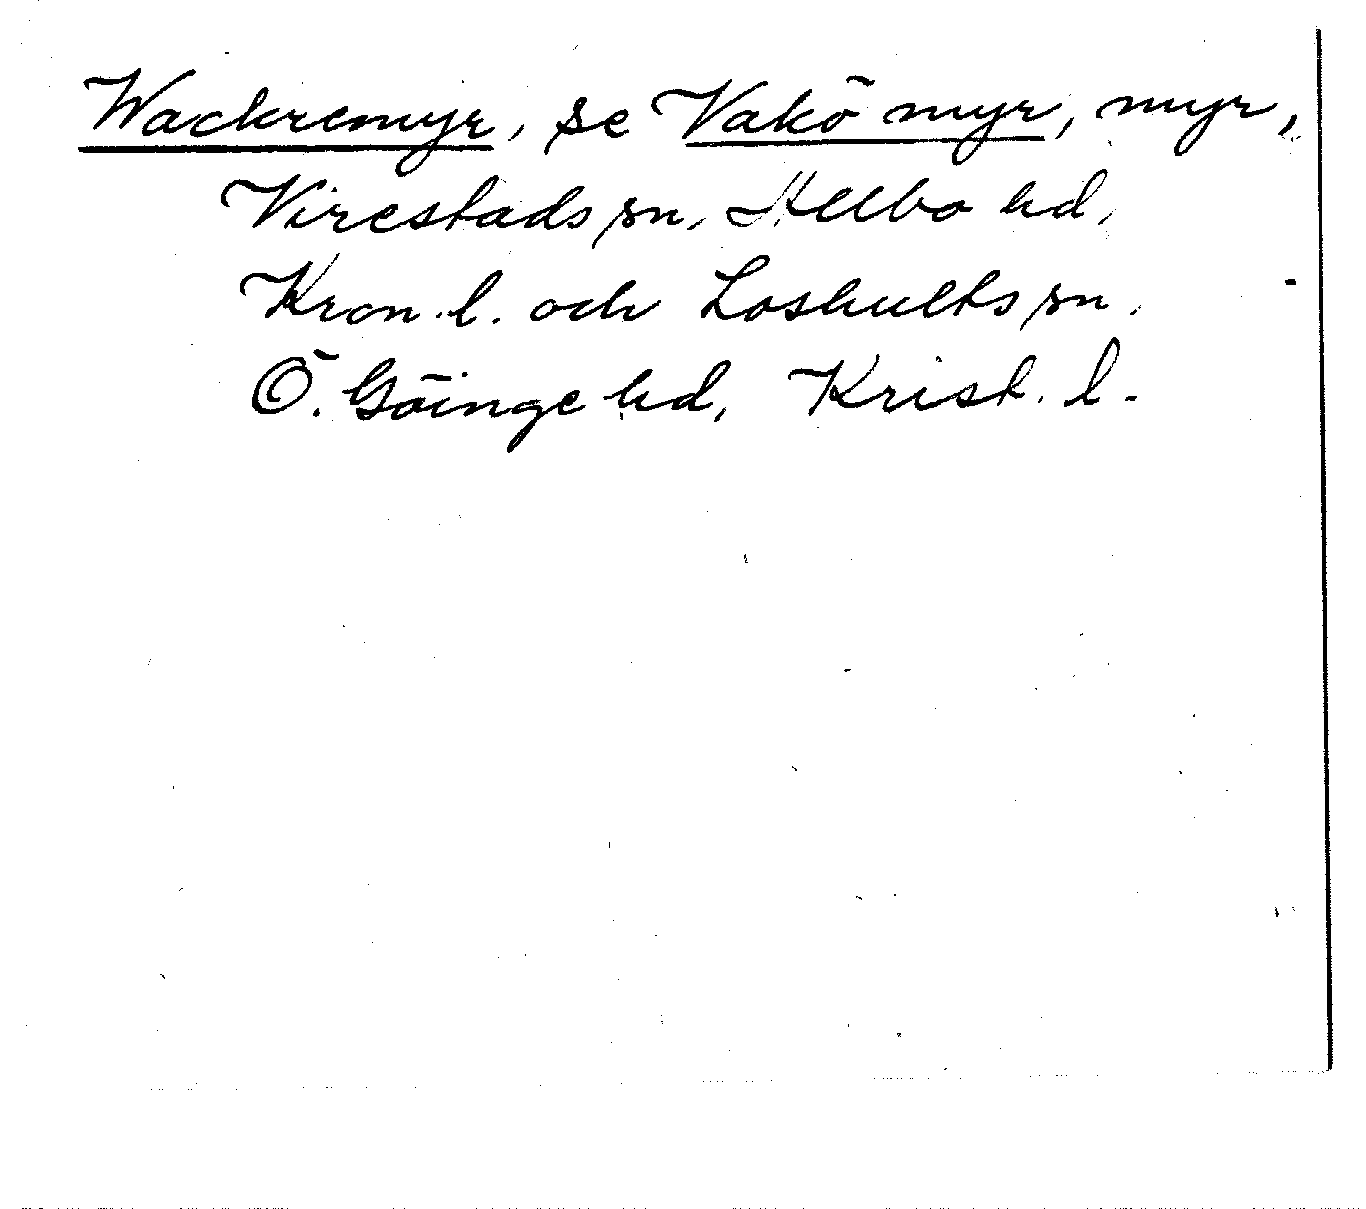 Wackremyr, se Vakö myr, myr,
Virestads sn, Allbo hd,
Kron. l. och Loshults sn,
Ö. Göinge hd, Krist. l.